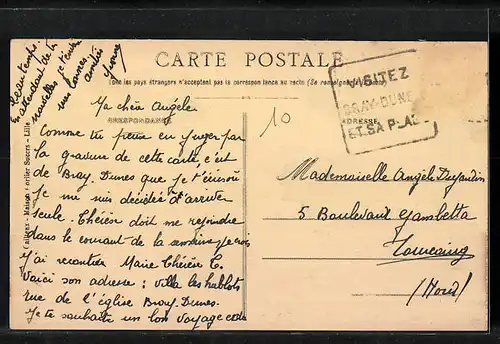 Beau temps.
En attendant de tes
nouvelles je t'envoie
mes bonnes
amitiés
CARTE POSTALE
Tous les pays étrangers n'acceptent pas la correspondance au recto (Se renseigner à la Poste)
VISITEZ
BRAY-DUNES
ET SA PLAGE
CORRESPONDANCE
ADRESSE
10
Ma chère Angèle
Comme tu peux en juger par
la gravure de cette carte, c'est
de Bray-Dunes que je t'écris
Je me suis décidée d'arriver
seule. Thérèse doit me rejoindre
dans le courant de la semaine je crois
J'ai rencontré Marie Thérèse C.
Voici son adresse : villa les hublots
rue de l'église Bray-Dunes.
Je te souhaite un bon voyage
Mademoiselle Angèle Dujardin
5 Boulevard Gambetta
Tourcoing
(Nord)
Cailteux - Maison Cortier Succrs - Lille